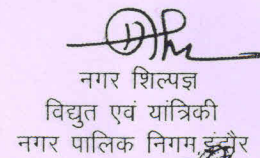 नगर शिल्पज्ञ
विद्युत एवं यांत्रिकी
नगर पालिक निगम,इन्दौर